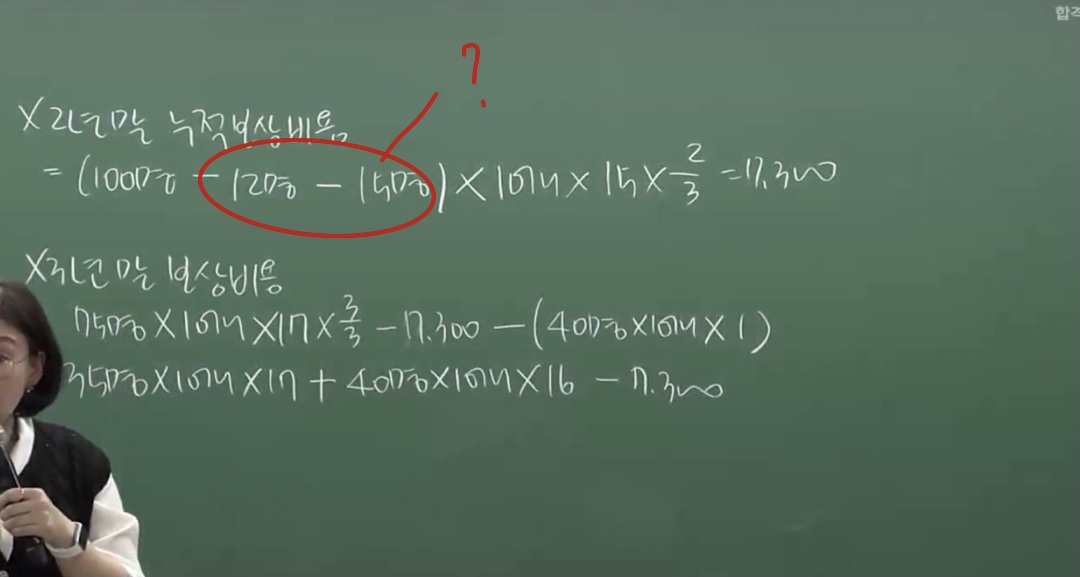 ?
X2년말 누적보상비용
= (100명 - 12명 - 15명) × 10개 × 15 × 2/3 = 7.300
X3년말 보상비용
75명 × 10개 × 17 × 3/3 - 7.300 - (40명 × 10개 × 1)
35명 × 10개 × 17 + 40명 × 10개 × 16 - 7.300